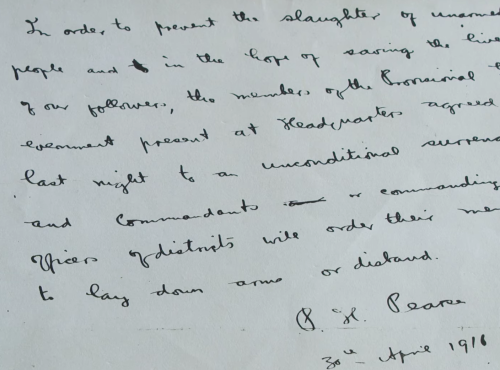 In order to prevent the slaughter of unarmed
people and in the hope of saving the lives
of our followers, the members of the Provisional
ernment present at Headquarters agreed
last night to an unconditional surren
and commandants or commanding
officers of districts will order their men
to lay down arms or disband.
P. H. Pearse
30th April 1916